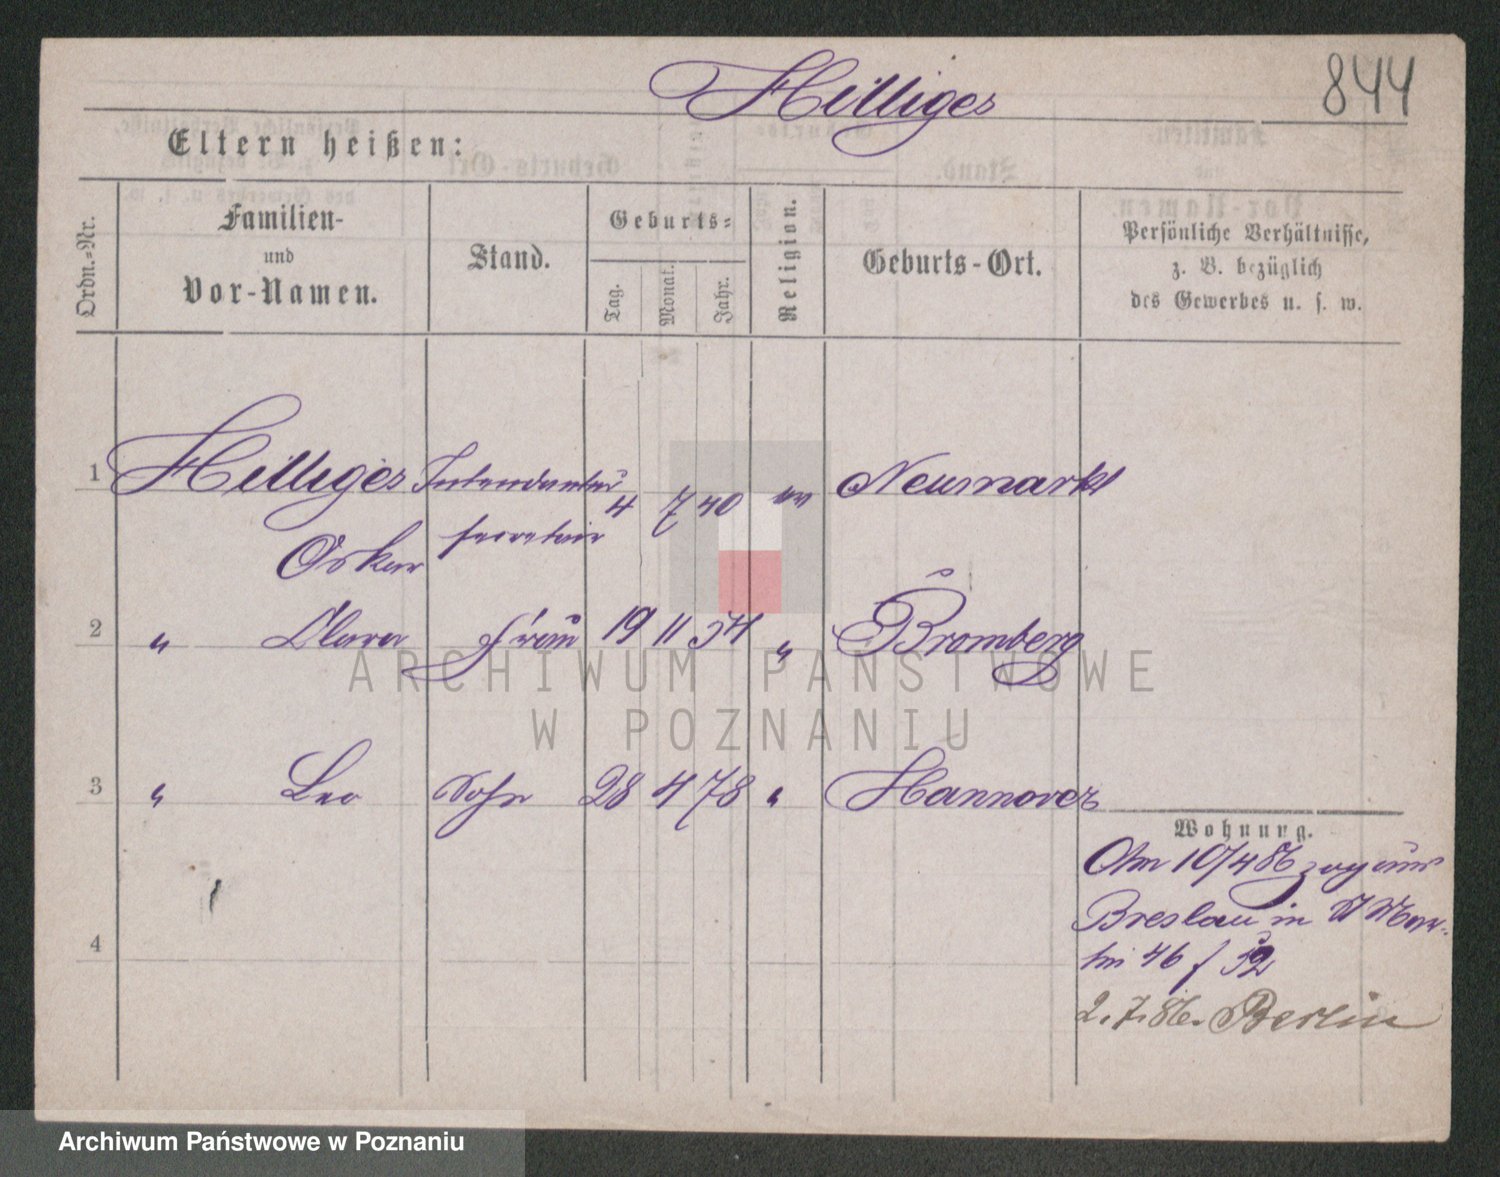 Hilliges
844
Eltern heißen:
Ordn.-Nr.
Familien-
und
Vor-Namen.
Stand.
Geburts-
Tag.
Monat.
Jahr.
Religion.
Geburts-Ort.
Persönliche Verhältnisse,
z. B. bezüglich
des Gewerbes u. s. w.
1 Hilliges Intendantur 4 7 40 ev Neumarkt
Oskar secretair
2 " Clara Frau 19 11 54 " Bromberg
3 " Leo Sohn 28 4 78 " Hannover
4
Wohnung.
Am 10/4 86 zog aus
Breslau in St Mar-
tin 46 f 52
2.7.86. Berlin
ARCHIWUM PAŃSTWOWE
W POZNANIU
Archiwum Państwowe w Poznaniu